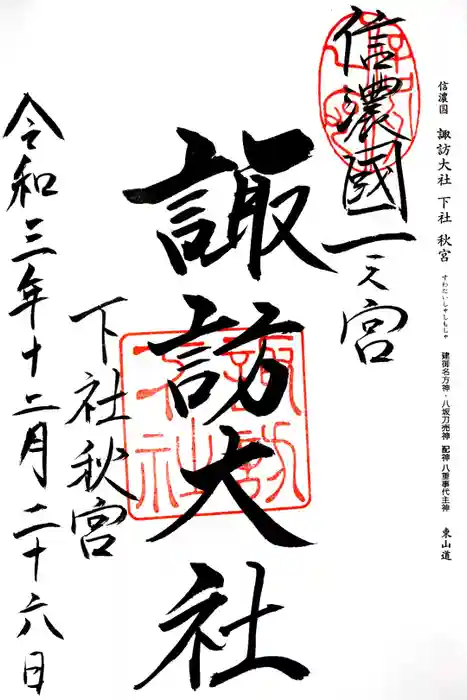 信濃国 諏訪大社 下社 秋宮
すわたいしゃしもしゃ
建御名方神・八坂刀売神 配神 八重事代主神 東山道
信濃國一之宮
諏訪大社
下社秋宮
令和三年十二月二十六日